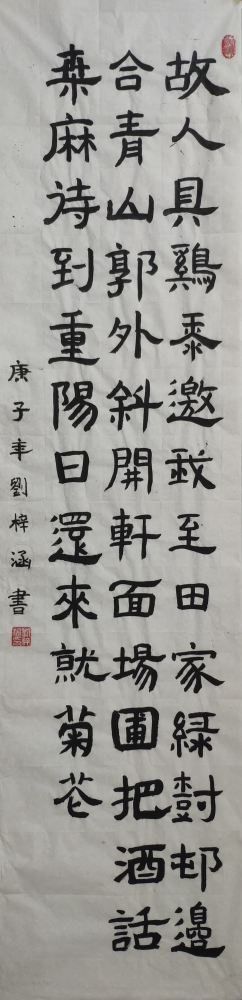 故人具鷄黍邀我至田家綠對邨邊
合青山郭外斜開軒面場圃把酒話
桒麻待到重陽日還來就菊花
庚子年劉梓涵書